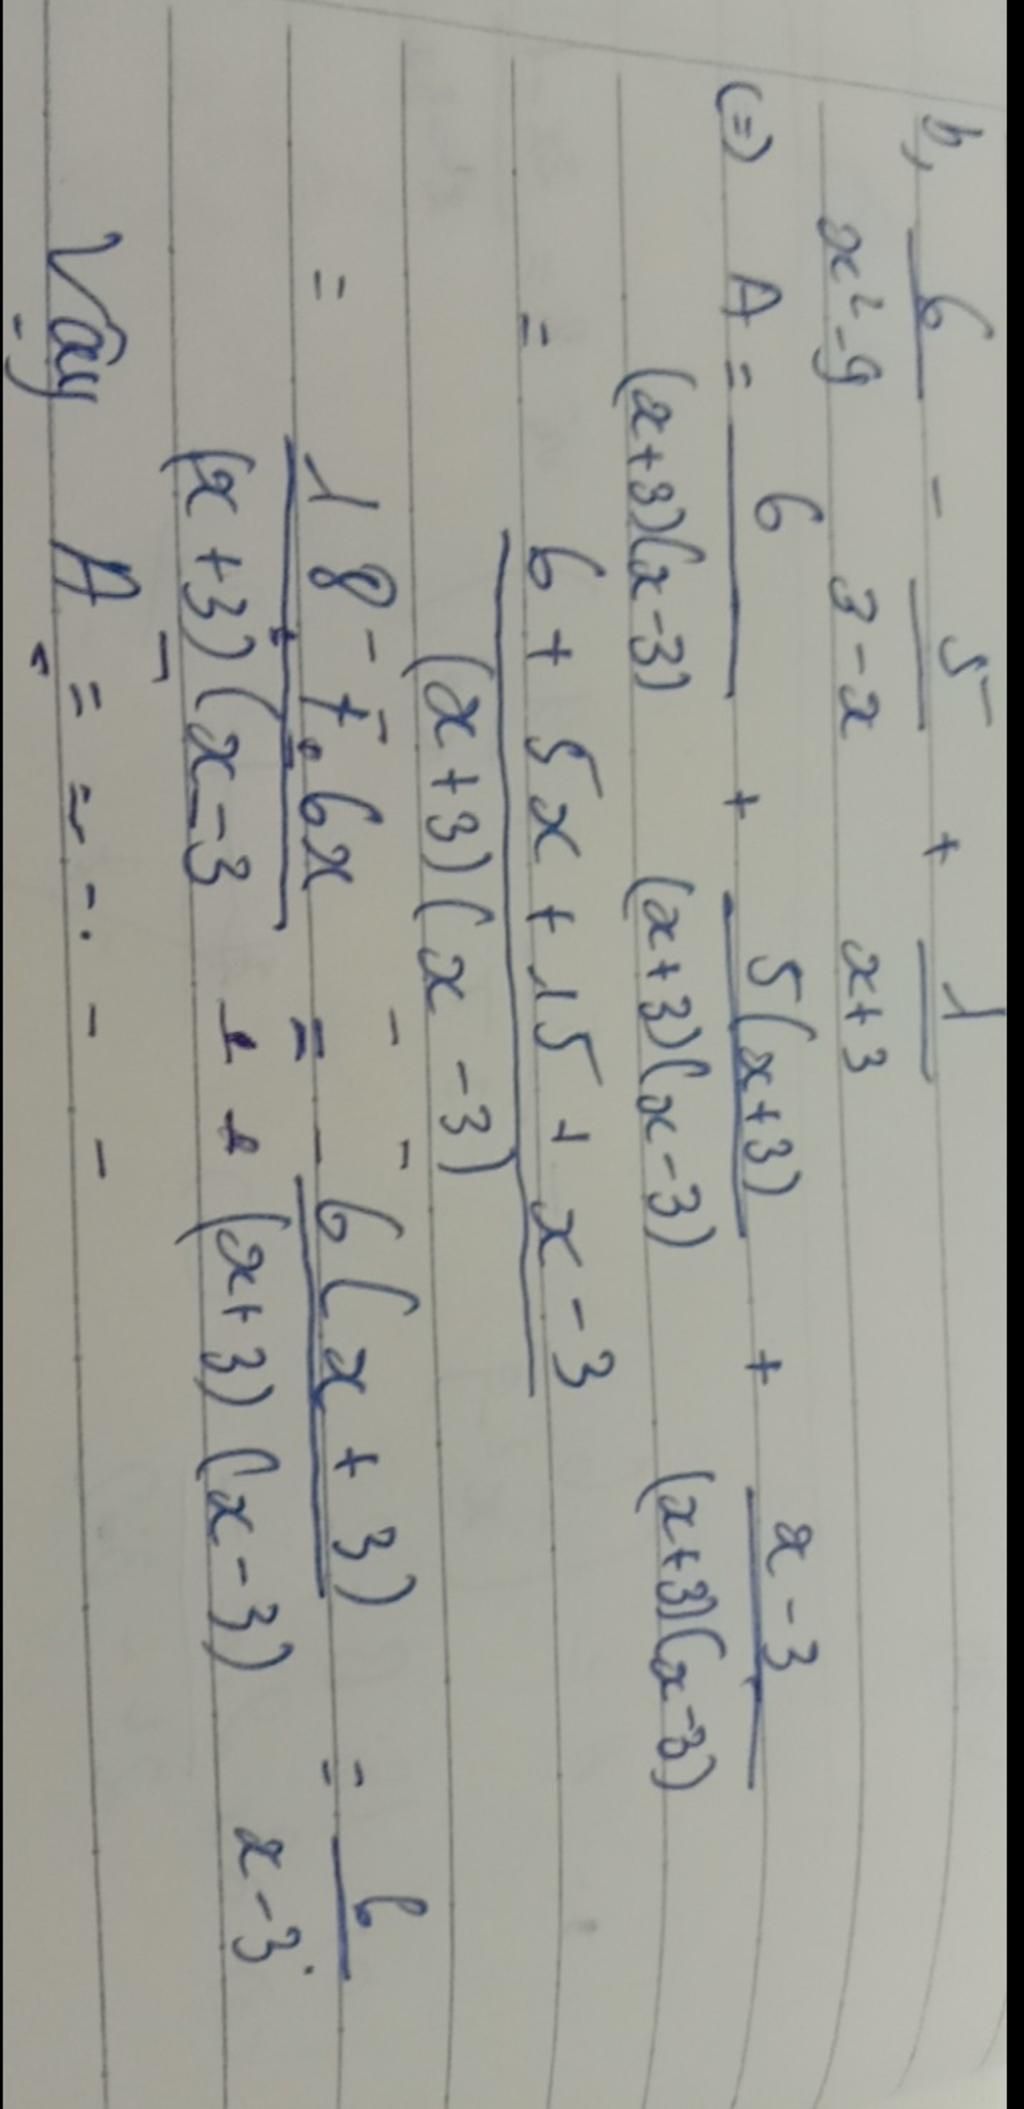 b, 6/(x² - 9) - 5/(3 - x) + 1/(x + 3)
(=) A = 6/((x+3)(x-3)) + 5(x+3)/((x+3)(x-3)) + (x-3)/((x+3)(x-3))
= (6 + 5x + 15 + x - 3)/((x+3)(x-3))
= (18 + 6x)/((x+3)(x-3) = 6(x+3)/((x+3)(x-3)) = 6/(x-3).
Vậy A =